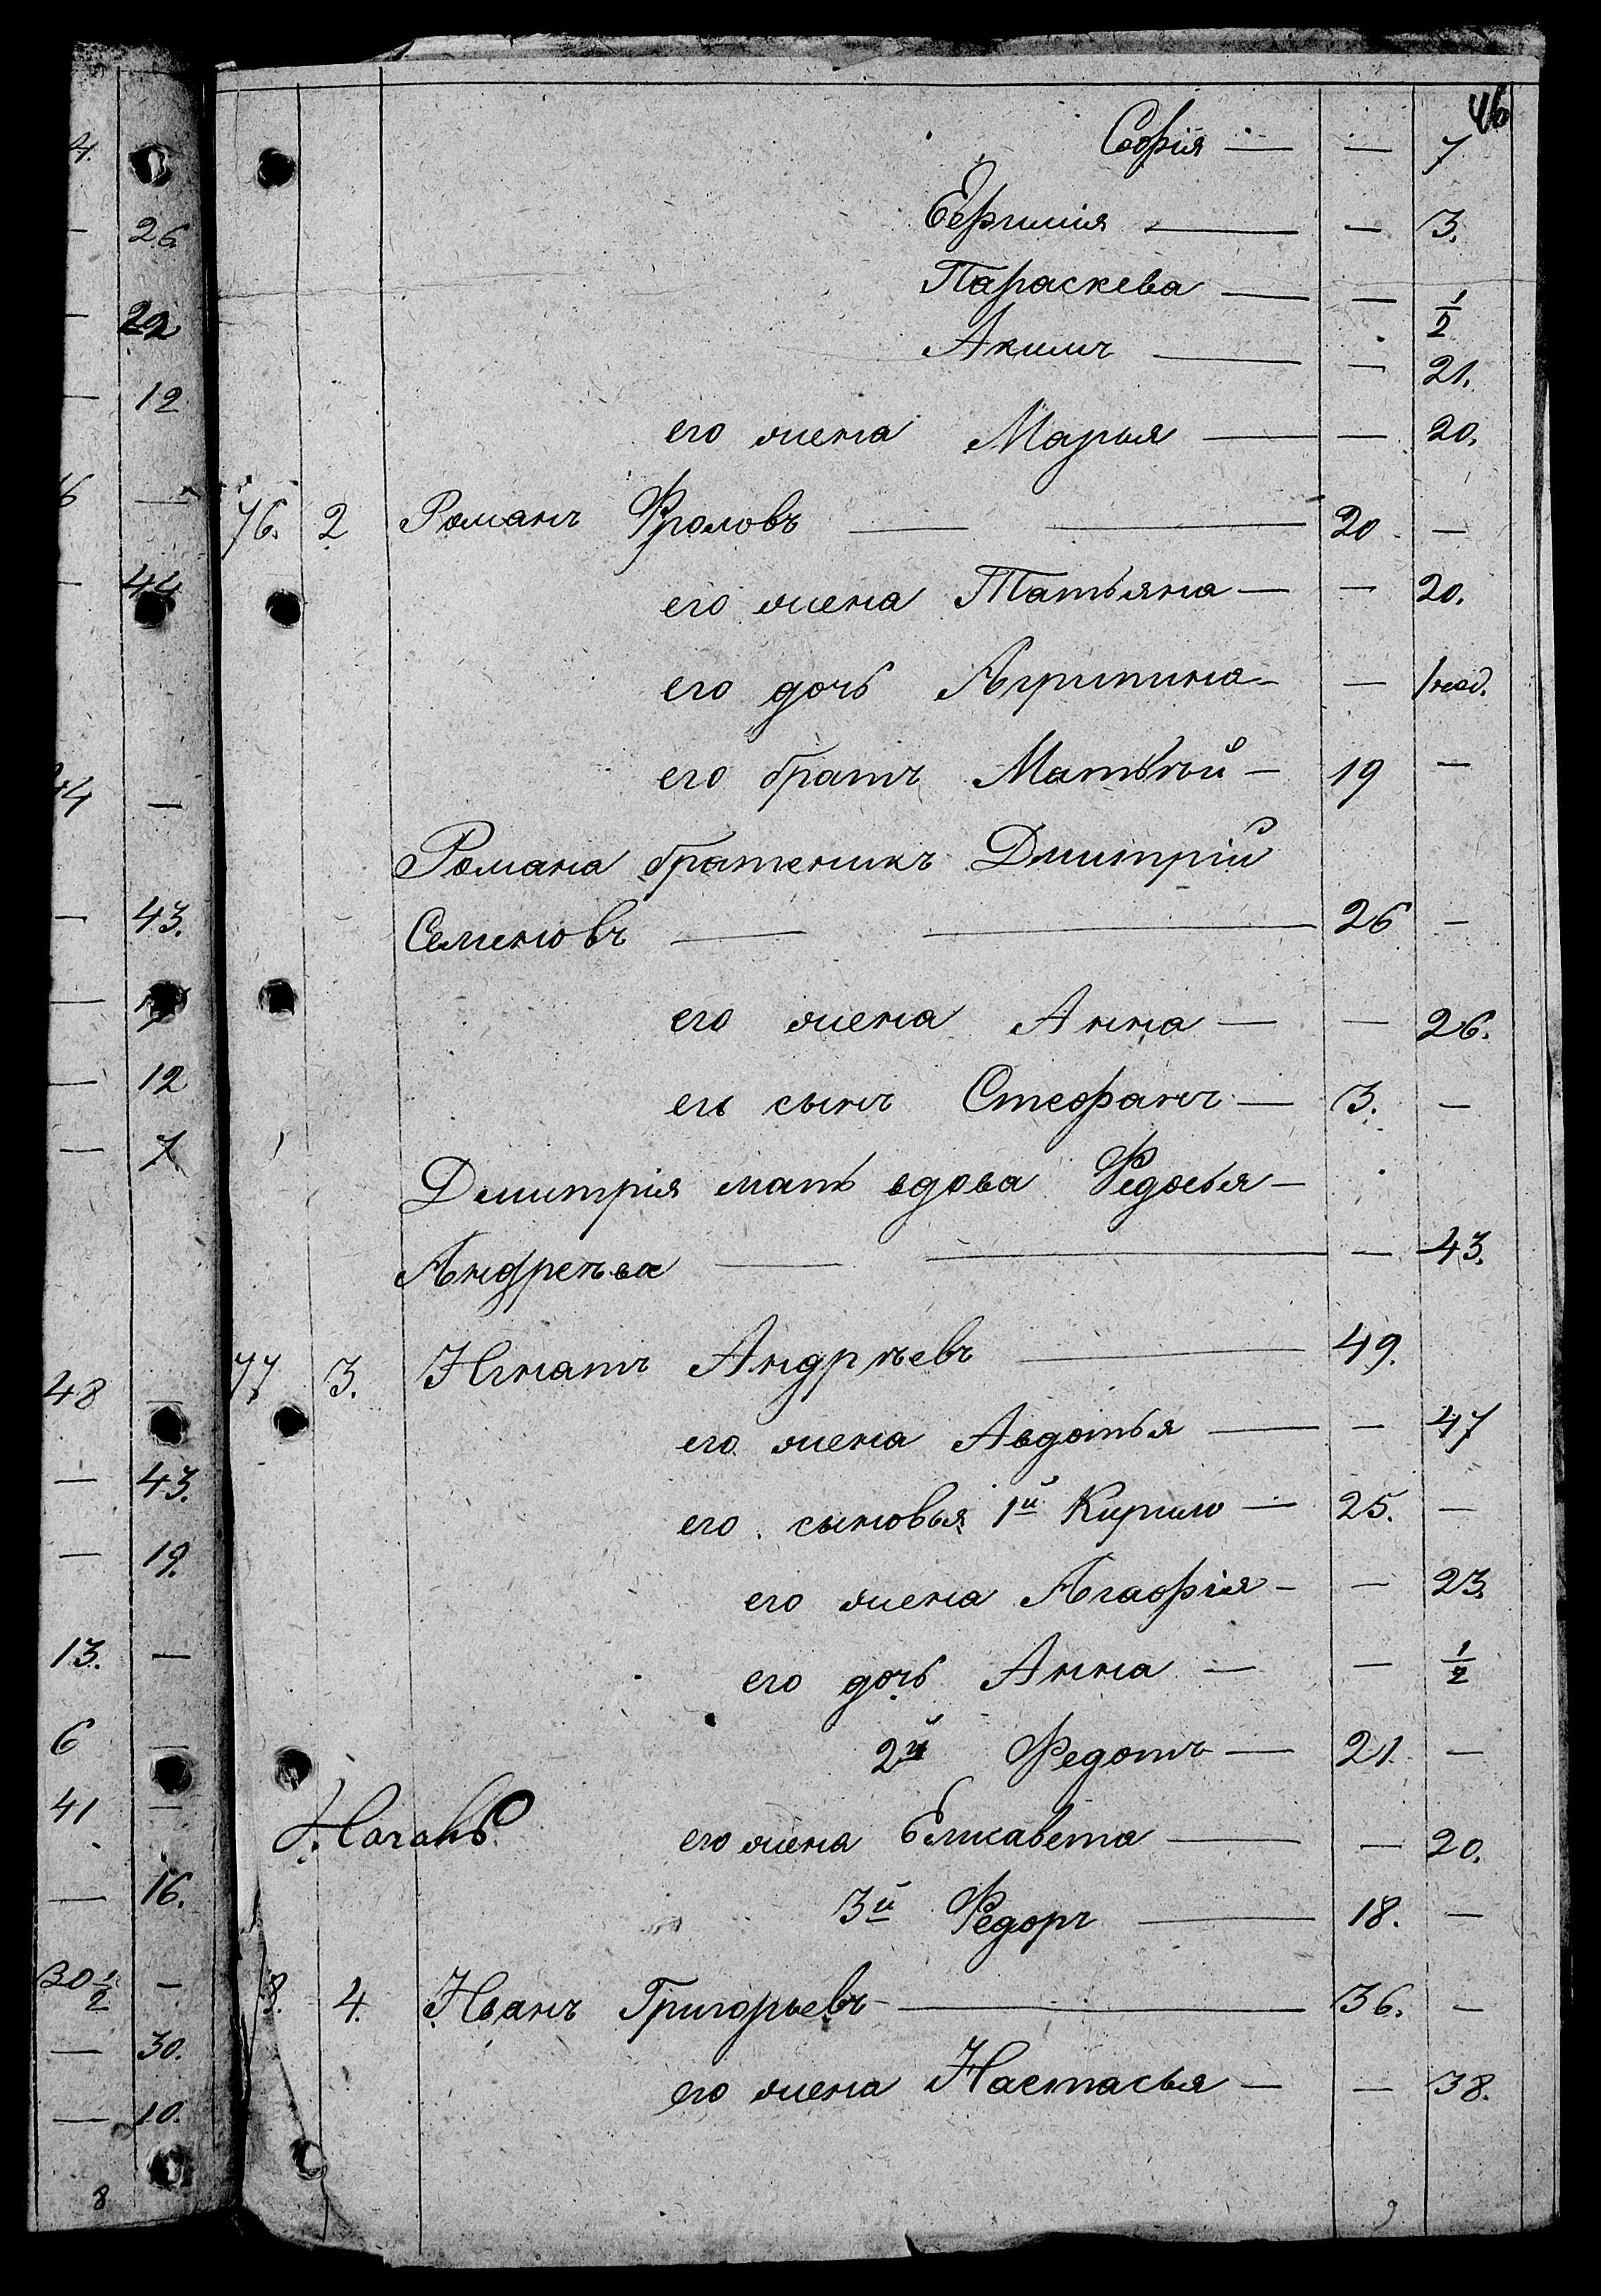 46
Софія — — 7
Ефимія — — 3.
Параскева — — 1/2
Акимъ — — 21.
его жена Марья — — 20.
76. 2 Романъ Фроловъ — — 20 —
его жена Татьяна — — 20.
его дочь Агрипина — — 1 нед.
его братъ Матвѣй — 19 —
Романа братеникъ Дмитрій
Семеновъ — — 26 —
его жена Анна — — 26.
его сынъ Стефанъ — 3. —
Дмитрія мать вдова Федосья —
Андреѣва — — — 43.
77 3. Игнатъ Андрѣевъ — 49.
его жена Авдотья — — 47
его сыновья 1й Кирило — 25. —
его жена Агафія — — 23.
его дочь Анна — — 1/2
2й Федотъ — 21. —
его жена Елисавета — — 20.
3й Федоръ — 18. —
8. 4. Иванъ Григорьевъ — 36. —
его жена Настасья — — 38.
4.
26
22
12
6 —
44
44 —
43.
12
7
48 —
43.
19.
13. —
6 —
41 —
16.
30 1/2 —
30.
10.
8